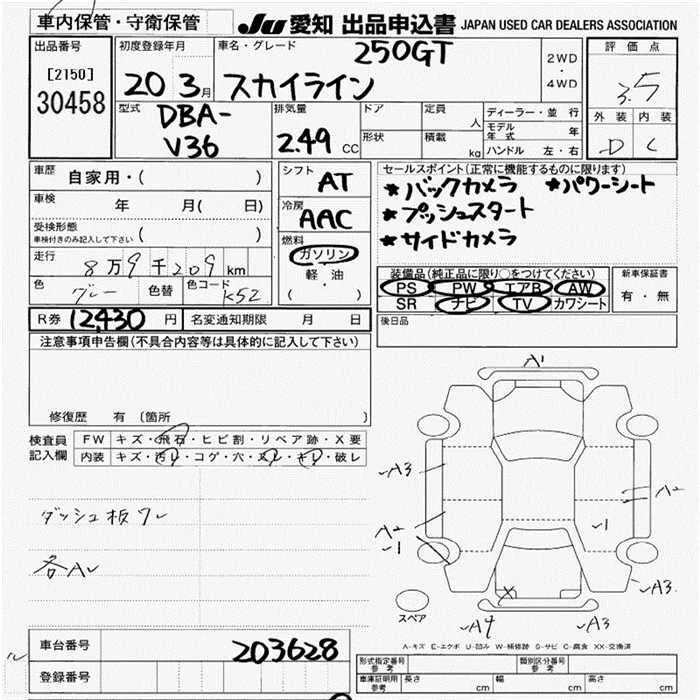 車内保管・守衛保管
JU 愛知 出品申込書 JAPAN USED CAR DEALERS ASSOCIATION
出品番号
[2150]
30458
初度登録年月
20 3月
車名・グレード
250GT
スカイライン
2WD
・
4WD
評価点
3.5
外装 内装
D C
型式
DBA-
V36
排気量
2.49 CC
ドア
形状
定員
人
積載
kg
ディーラー・並行
モデル年式 年
ハンドル 左・右
車歴 自家用・( )
車検 年 月( 日)
受検形態
車検付きのみ記入して下さい ( )
走行 8万9千209km
色 グレー 色替 色コード K52
シフト
AT
冷房
AAC
燃料
ガソリン
軽・油
( )
セールスポイント(正常に機能するものに限ります)
★バックカメラ ★パワーシート
★プッシュスタート
★サイドカメラ
装備品(純正品に限り○をつけてください)
PS PW エアB AW
SR ナビ TV カワシート
新車保証書
有・無
R券 12,430 円 名変通知期限 月 日
後日品
注意事項申告欄(不具合内容等は具体的に記入して下さい)
修復歴 有(箇所 )
検査員
記入欄
FW キズ・飛石・ヒビ割・リペア跡・X要
内装 キズ・汚レ・コゲ・穴・スレ・キレ・破レ
ダッシュ板ワレ
各Aレ
A1
A3
A2
A2
1
1
A3
A4
A3
スペア
A-キズ E-エクボ U-凹み W-補修跡 S-サビ C-腐食 XX-交換済
車台番号 203628
登録番号
形式指定番号
参考
類別区分番号
参考
車庫証明用
参考
長さ cm 幅 cm 高さ cm